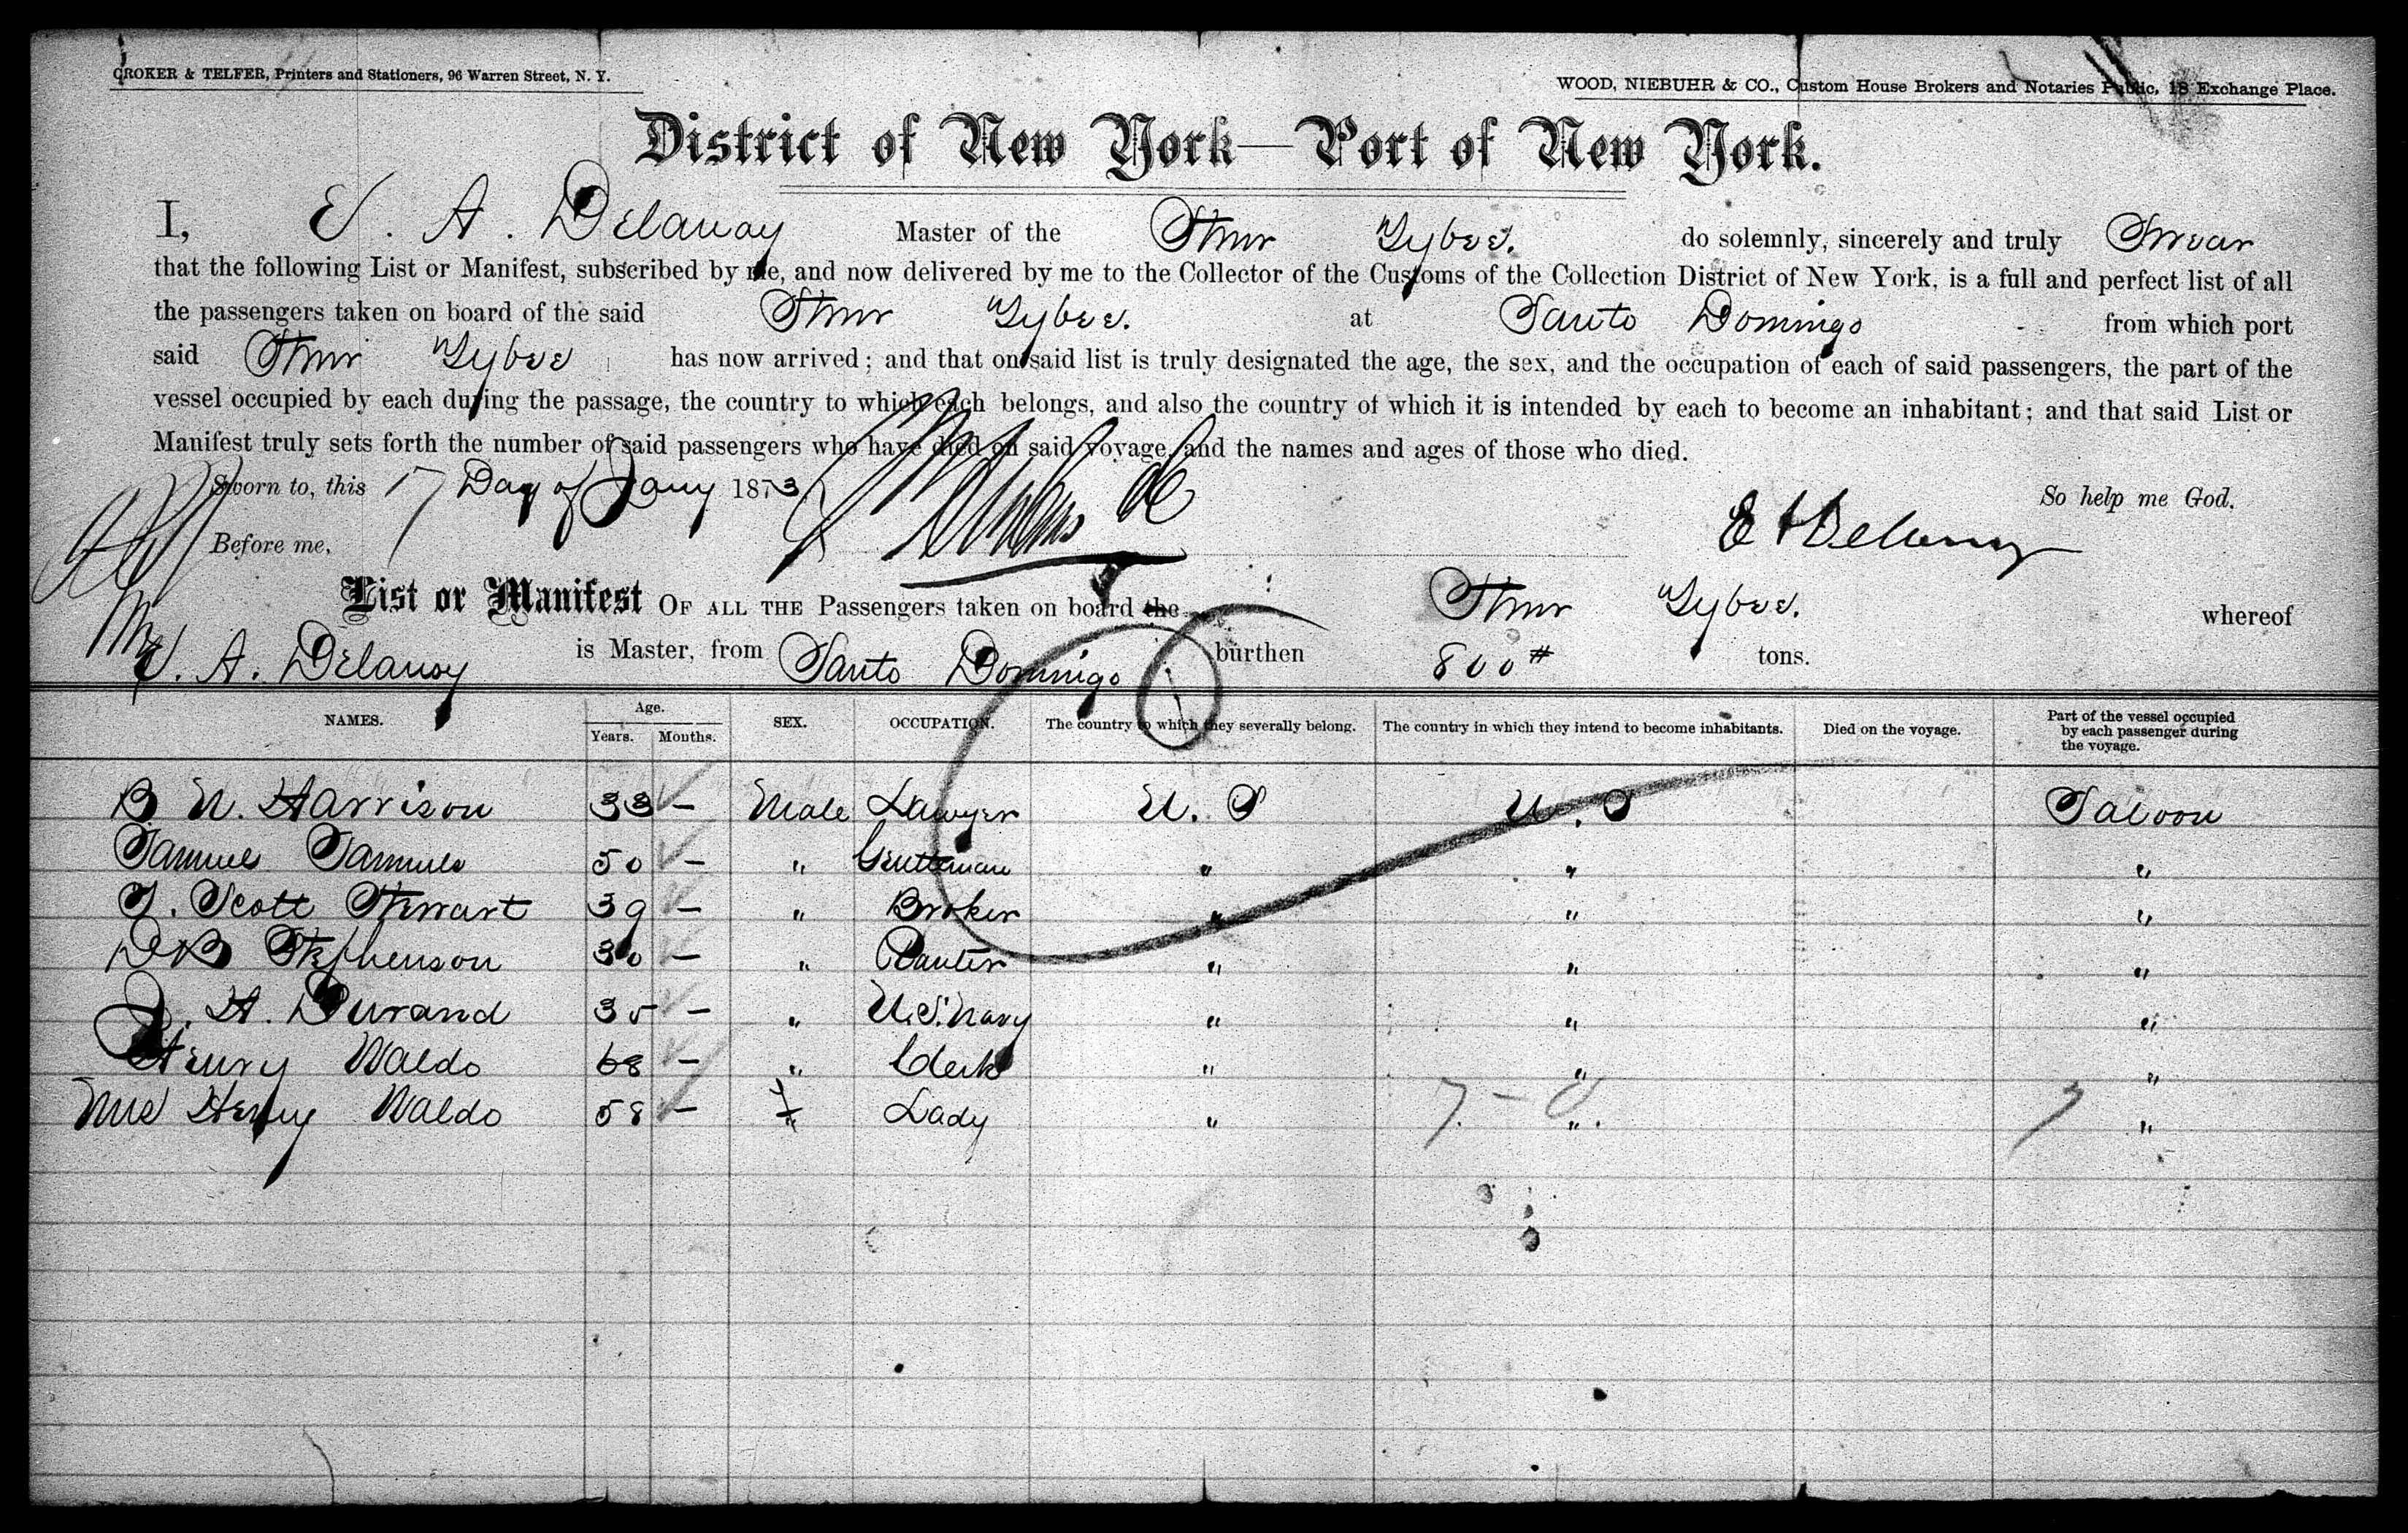 CROKER & TELFER, Printers and Stationers, 96 Warren Street, N. Y.
WOOD, NIEBUHR & CO., Custom House Brokers and Notaries Public, 18 Exchange Place.
District of New York—Port of New York.
I, E. A. Delanoy Master of the Stmr Tybee. do solemnly, sincerely and truly Swear
that the following List or Manifest, subscribed by me, and now delivered by me to the Collector of the Customs of the Collection District of New York, is a full and perfect list of all
the passengers taken on board of the said Stmr Tybee. at Santo Domingo from which port
said Stmr Tybee has now arrived; and that on said list is truly designated the age, the sex, and the occupation of each of said passengers, the part of the
vessel occupied by each during the passage, the country to which each belongs, and also the country of which it is intended by each to become an inhabitant; and that said List or
Manifest truly sets forth the number of said passengers who have died on said voyage, and the names and ages of those who died.
Sworn to, this 17 Day of Jany 1873
So help me God.
Before me,
E A Delanoy
List or Manifest OF ALL THE Passengers taken on board the Stmr Tybee. whereof
E. A. Delanoy is Master, from Santo Domingo burthen 800 # tons.
NAMES. Age. Years. Months. SEX. OCCUPATION. The country to which they severally belong. The country in which they intend to become inhabitants. Died on the voyage. Part of the vessel occupied by each passenger during the voyage.
B N. Harrison 33 – Male Lawyer U. S U. S Saloon
Samuel Samuels 50 – " Gentleman " " "
T. Scott Stewart 39 – " Broker " " "
D B Stephenson 30 – " Planter " " "
J. H. Durand 35 – " U.S. Navy " " "
Henry Waldo 68 – " Clerk " " "
Mrs Henry Waldo 58 – f Lady " " "
7 – 0
7